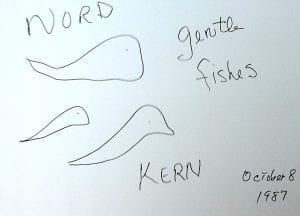 NORD
gentle
fishes
KERN
October 8
1987